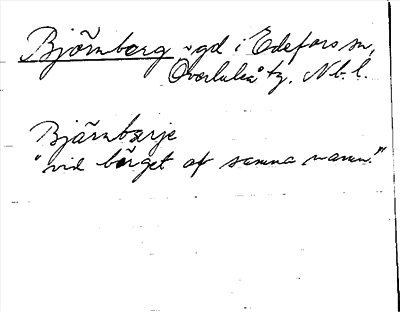 Björnberg, gd i Edefors sn,
Överluleå tg. Nb. l.
Björnberje
"vid bërget af samma namn."